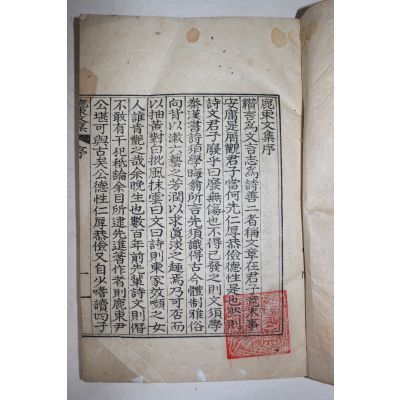 鹿東文集序
纘言爲文言志爲詩善二者稱文章在君子竟末事
安庸是屑觀君子當何先仁厚恭儉德性是也然則
詩文君子廢乎曰廢無傷也不得已發之則文須學
秦漢書詩須學晦翁所言先須識得古今體制雅俗
向背以漱六藝之芳潤以求眞淡之趣焉乃可否而
以抽黃對白批風抹雲曰文曰詩則東家效嚬之女
人誰肯艶之哉余晩生也數百年前先輩詩文則僭
不敢有干犯秪論余目所逮先進著作者則鹿東尹
公堪可與古矣公德性仁厚恭儉又自少嗜讀四子
鹿東文集 序 一